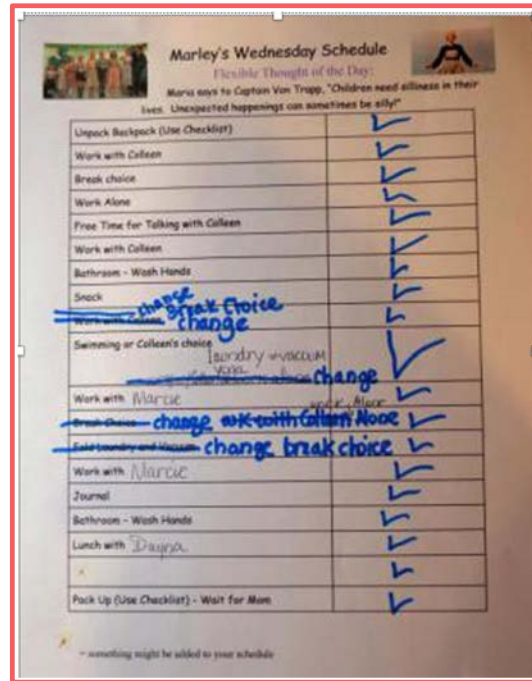 Marley's Wednesday Schedule
Flexible Thought of the Day:
Maria says to Captain Von Trapp, "Children need silliness in their
lives. Unexpected happenings can sometimes be silly!"
Unpack Backpack (Use Checklist)
Work with Colleen
Break choice
Work Alone
Free Time for Talking with Colleen
Work with Colleen
Bathroom - Wash Hands
Snack
change Break Choice
Work with Colleen change
Swimming or Colleen's choice
laundry + vacuum
yoga
change
Work with Marcie
Break Choice change wk with Colleen Alone
work Alone
Fold Laundry and Vacuum change break choice
Work with Marcie
Journal
Bathroom - Wash Hands
Lunch with Dayna
Pack Up (Use Checklist) - Wait for Mom
- something might be added to your schedule